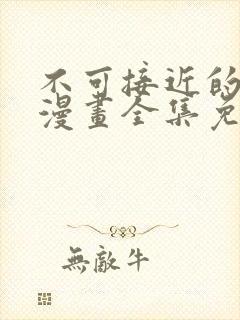 不可接近的
漫畫全集免
無敵牛